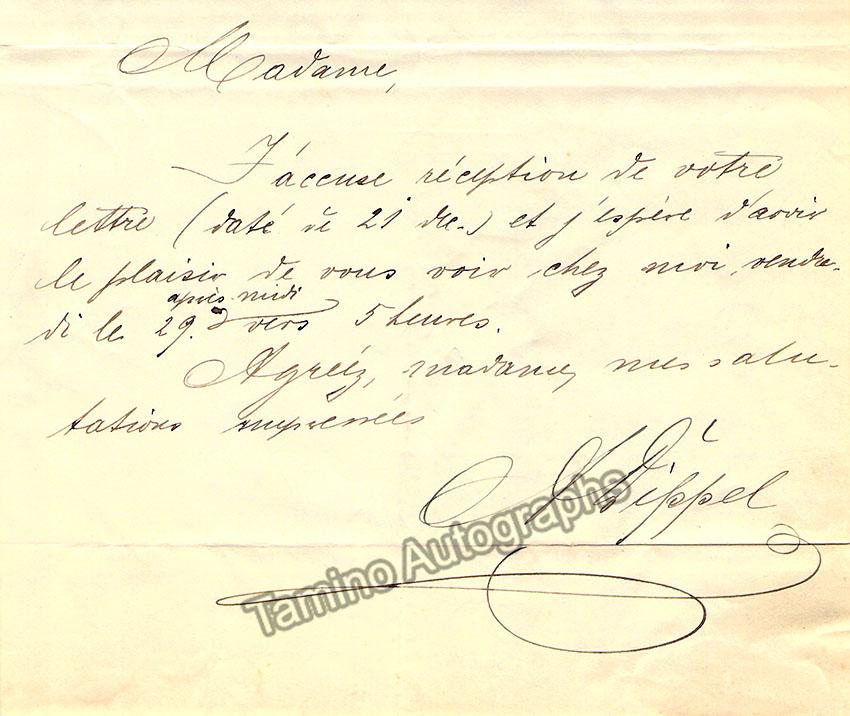 Madame,
J'accuse réception de votre
lettre (daté de 21 dec.) et j'espère d'avoir
le plaisir de vous voir chez moi, vendre-
après-midi
di le 29. vers 5 heures.
Agreéz, madame, mes salu-
tations empressées
Dippel
Tamino Autographs